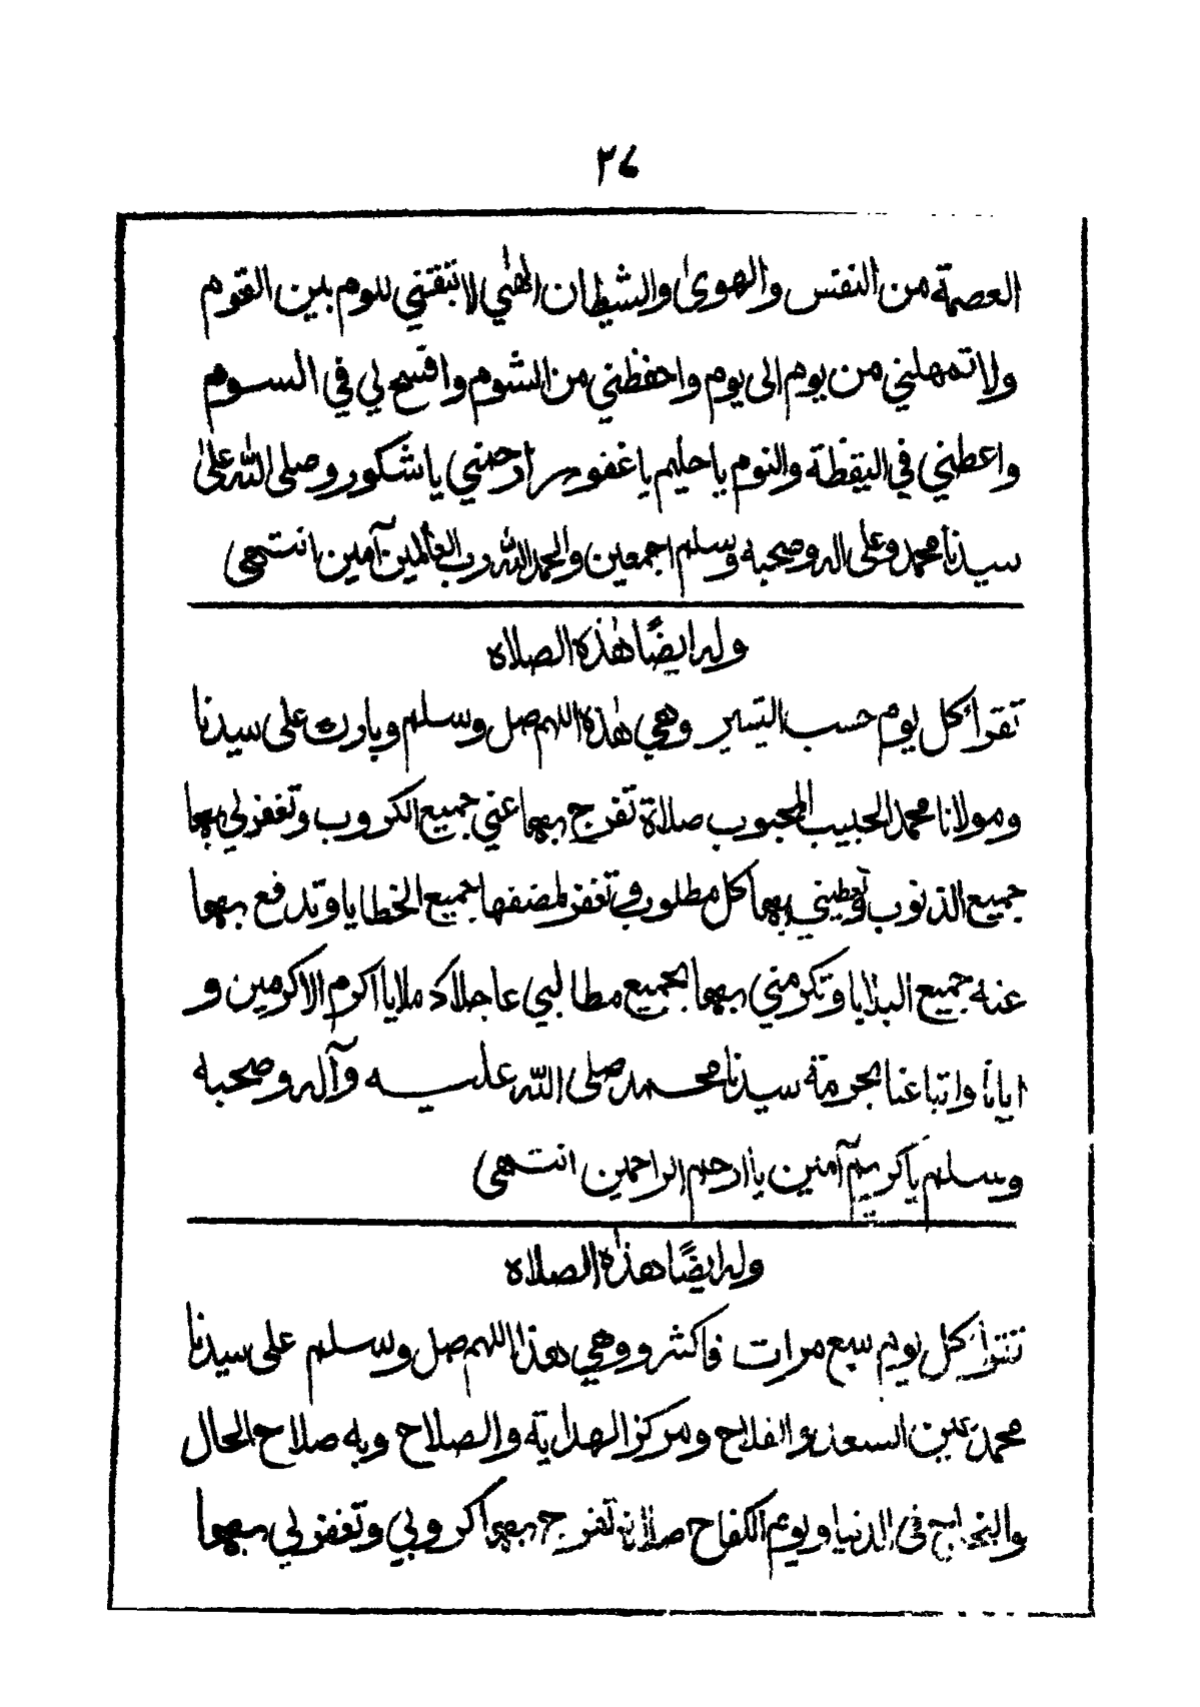 ٣٧
العصمة من النفس والهوى والشيطان الهي لا تبقني للوم بين القوم
ولا تمهلني من يوم الى يوم واحفظني من الشوم وافسح لي في السوم
واعطني في اليقظة والنوم يا حليم يا غفور ارحمني يا شكور وصلى الله على
سيدنا محمد وعلى اله وصحبه وسلم اجمعين والحمد لله رب العالمين آمين انتهى
وله ايضًا هذه الصلاة
تقرأ كل يوم حسب التيسير وهي هذه اللهم صل وسلم وبارك على سيدنا
ومولانا محمد الحبيب المحبوب صلاة تفرج بها عني جميع الكروب وتغفر لي بها
جميع الذنوب وتعطيني بها كل مطلوب وتغفر لمصنفها جميع الخطايا وتدفع بها
عنه جميع البلايا وتكرمني بها بجميع مطالبي عاجلا كاملا يا اكرم الاكرمين و
ايانا واتباعنا بحرمة سيدنا محمد صلى الله عليه وآله وصحبه
وسلم يا كريم آمين يا ارحم الراحمين انتهى
وله ايضًا هذه الصلاة
تقرأ كل يوم سبع مرات فاكثر وهي هذا اللهم صل وسلم على سيدنا
محمد عين السعد والفلاح ومركز الهداية والصلاح وبه صلاح الحال
والنجاح في الدنيا ويوم الكفاح صلاة تفرج بها كروبي وتغفر لي بها